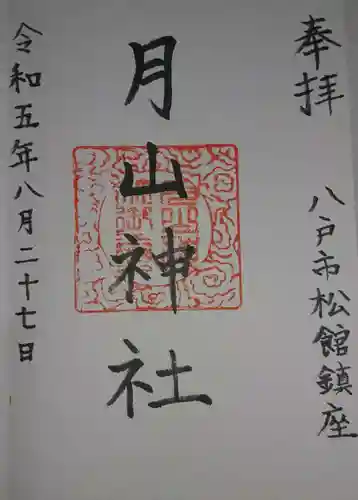 奉拝　八戸市松館鎮座
月山神社
令和五年八月二十七日